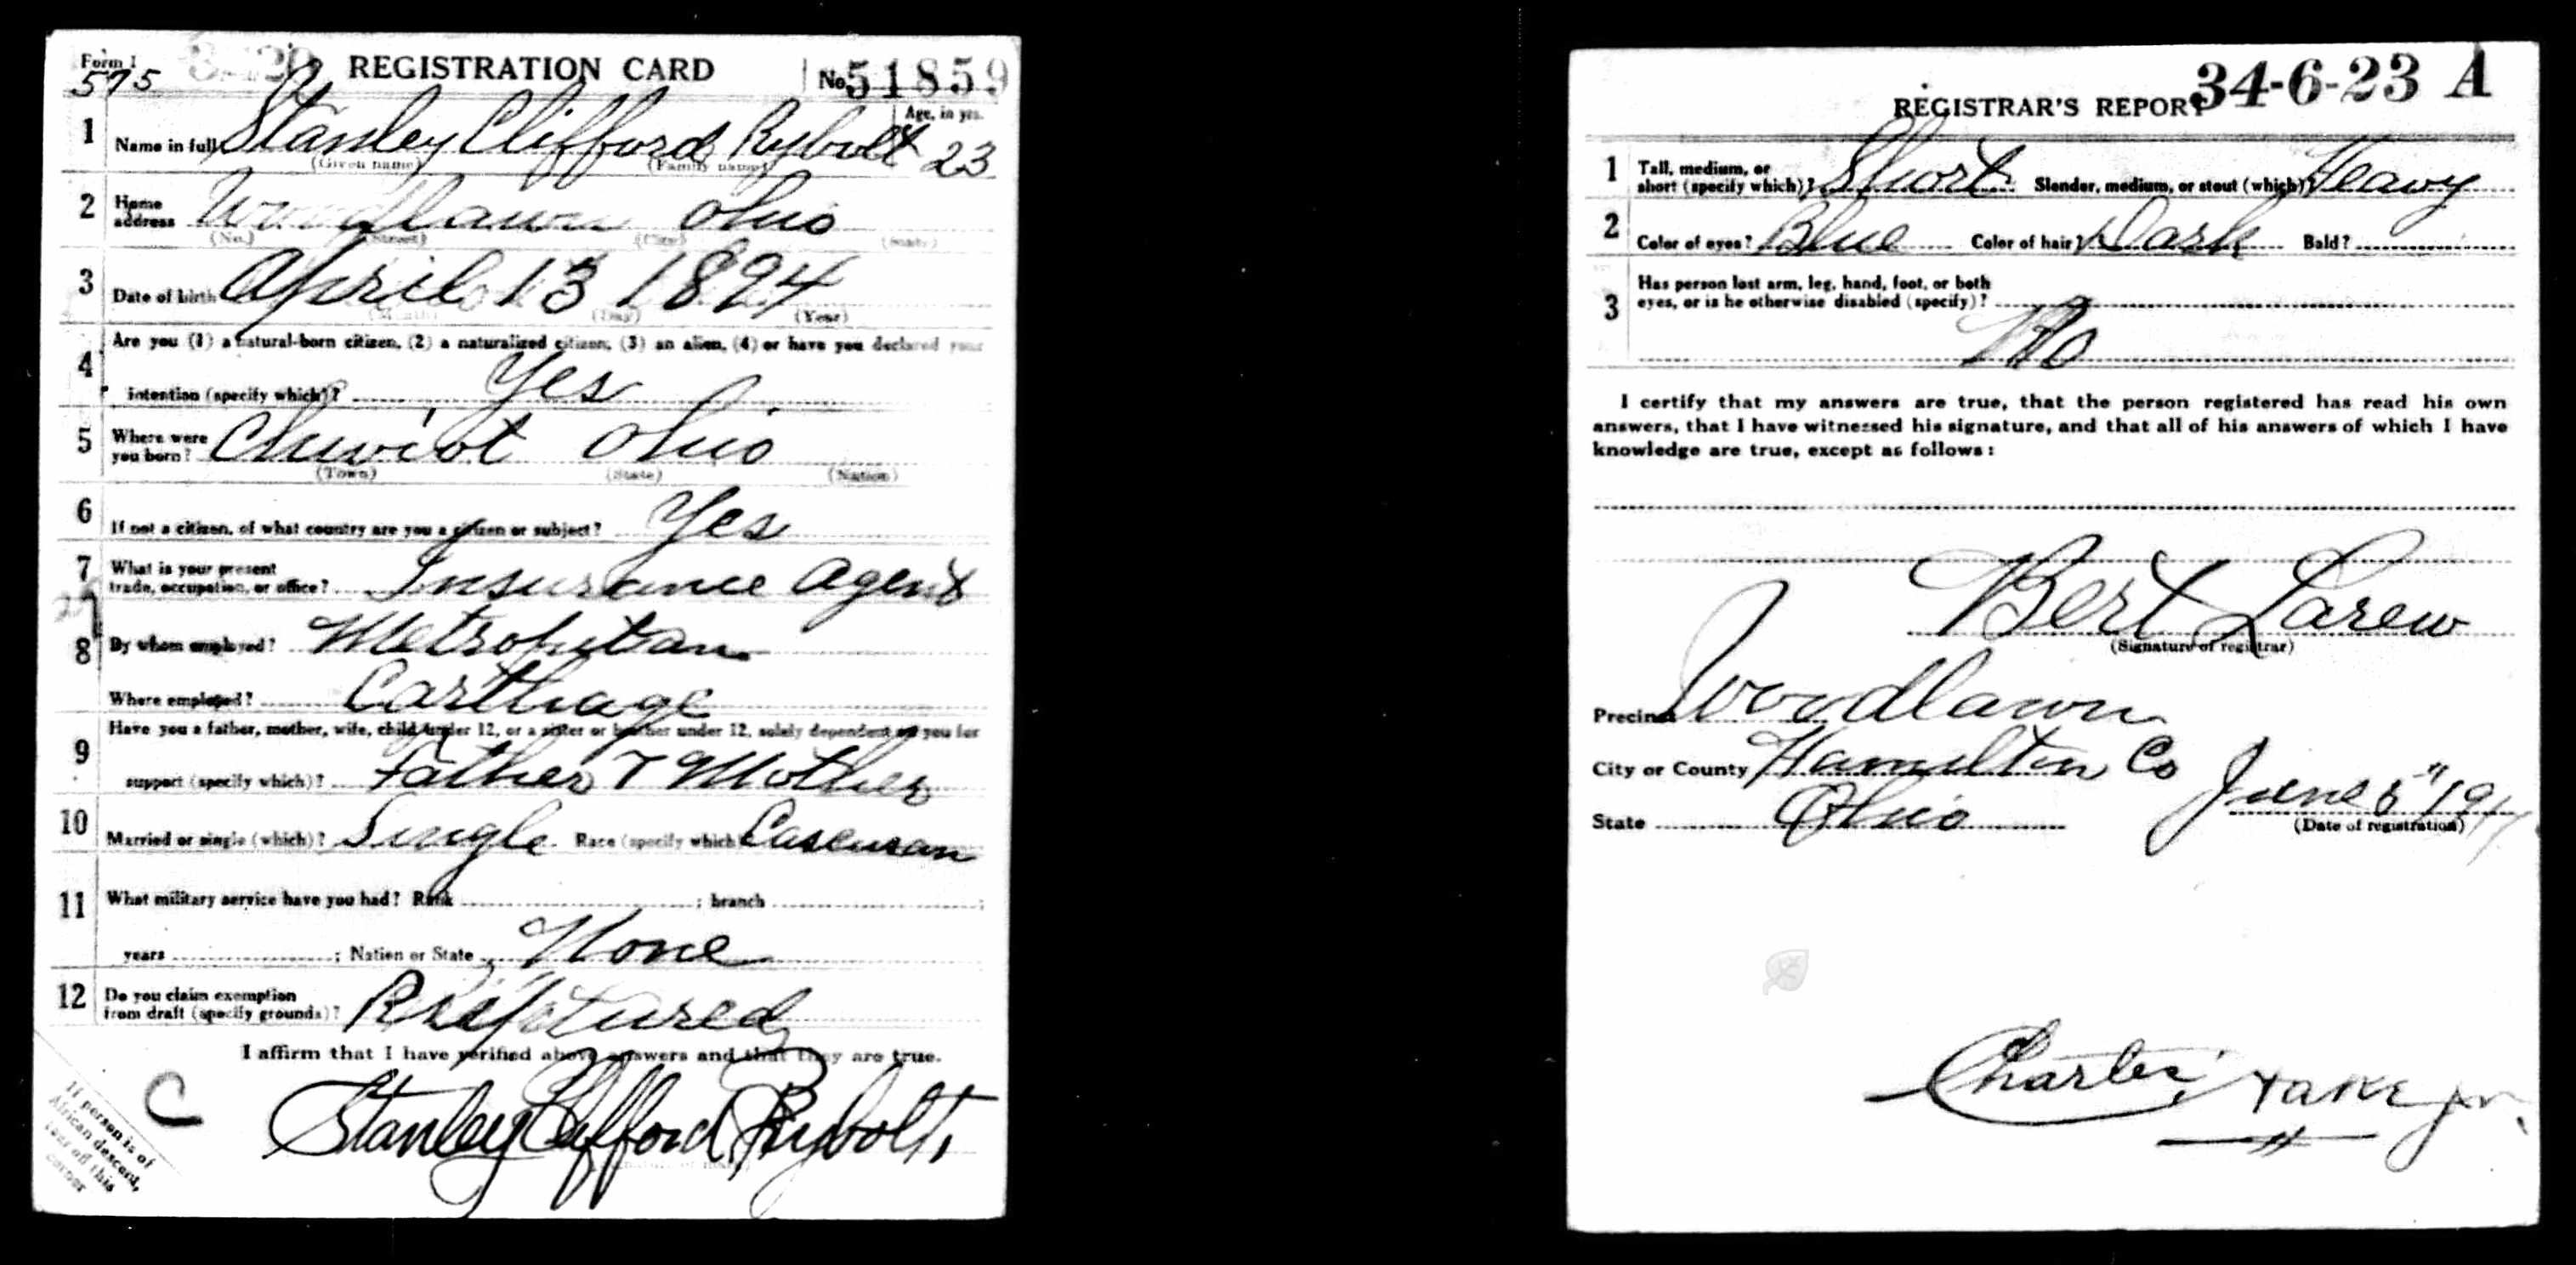 Form 1 REGISTRATION CARD No. 51859
575
Age, in yrs.
1 Name in full Stanley Clifford Rybolt 23
(Given name) (Family name)
2 Home address Woodlawn Ohio
(No.) (Street) (City) (State)
3 Date of birth April 13 1894
(Month) (Day) (Year)
4 Are you (1) a natural-born citizen, (2) a naturalized citizen, (3) an alien, (4) or have you declared your
intention (specify which)? Yes
5 Where were you born? Cheviot Ohio
(Town) (State) (Nation)
6 If not a citizen, of what country are you a citizen or subject? Yes
7 What is your present trade, occupation, or office? Insurance Agent
8 By whom employed? Metropolitan
Where employed? Carthage
9 Have you a father, mother, wife, child under 12, or a sister or brother under 12, solely dependent on you for
support (specify which)? Father & Mother
10 Married or single (which)? Single Race (specify which)? Caseusan
11 What military service have you had? Rank ; branch ;
years ; Nation or State None
12 Do you claim exemption from draft (specify grounds)? Ruptured
I affirm that I have verified above answers and that they are true.
C Stanley Clifford Rybolt,
If person is of
African descent,
tear off this
corner
34-6-23 A
REGISTRAR'S REPORT
1 Tall, medium, or short (specify which)? Short Slender, medium, or stout (which)? Heavy
2 Color of eyes? Blue Color of hair? Dark Bald?
3 Has person lost arm, leg, hand, foot, or both
eyes, or is he otherwise disabled (specify)?
No
I certify that my answers are true, that the person registered has read his own
answers, that I have witnessed his signature, and that all of his answers of which I have
knowledge are true, except as follows:
Bert Larew
(Signature of registrar)
Precinct Woodlawn
City or County Hamilton Co
State Ohio June 5" 1917
(Date of registration)
Charles Jr.